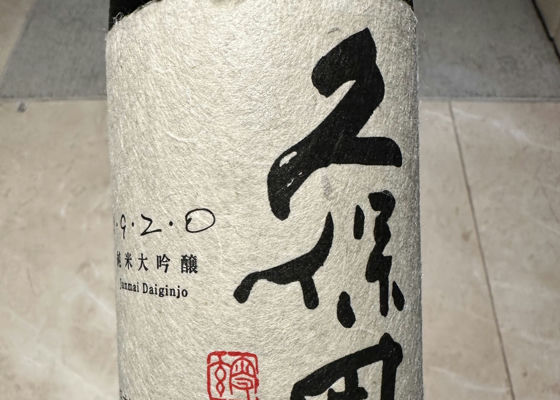 久保田
·9·2·0
純米大吟醸
Junmai Daiginjo